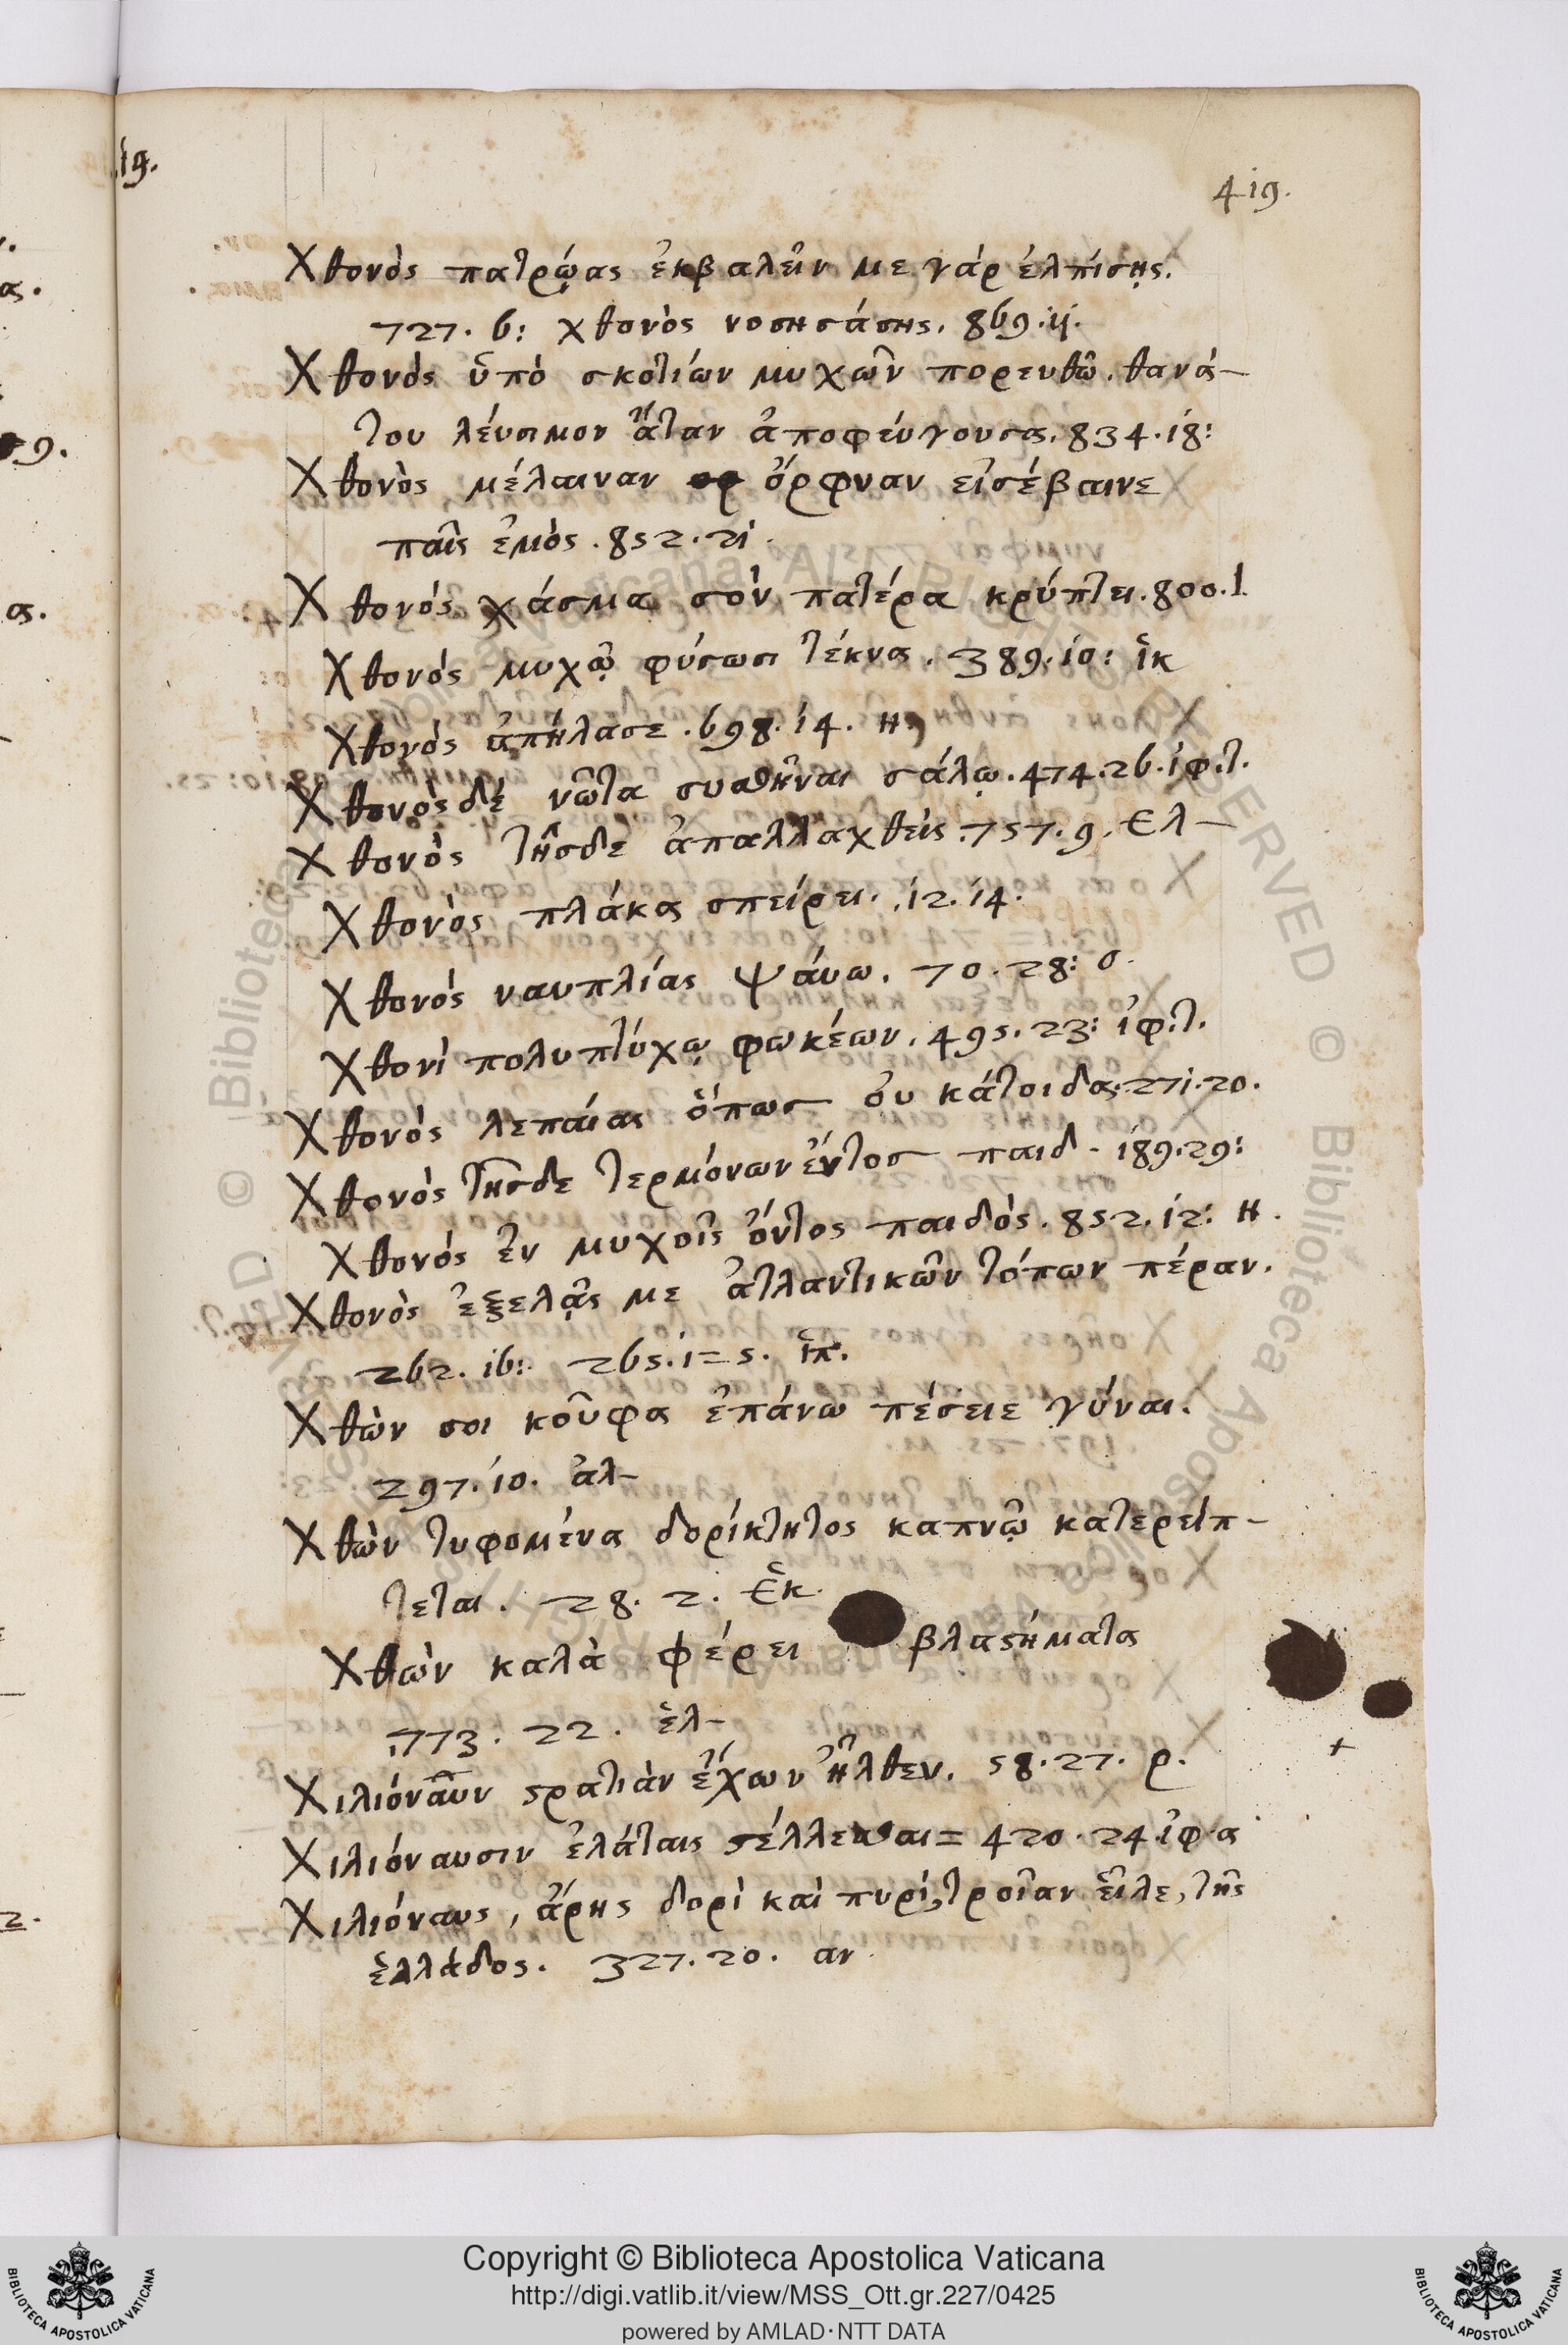 419.
Χθονὸς πατρῴας ἐκβαλεῖν με γὰρ ἐλπίσῃς.
727. 6: χθονὸς νοσησάσης. 869. ii.
Χθονὸς ὑπὸ σκοτίων μυχῶν πορευθῶ. θανά-
του λεύσιμον ἄταν ἀποφεύγουσα. 834. 18:
Χθονὸς μέλαιναν ὄρφναν εἰσέβαινε
παῖς ἐμὸς. 852. 21.
Χθονὸς χάσμα σὸν πατέρα κρύπτει. 800. 1
Χθονὸς μυχῷ φύσωσι τέκνα. 389. 10: ἱκ
Χθονὸς ἀπήλασε. 698. 14. η
Χθονὸς δὲ νῶτα σεισθῆναι σάλῳ. 474. 26. ἰφ. τ.
Χθονὸς τῆσδε ἀπαλλαχθεὶς. 757. 9. Ελ-
Χθονὸς πλάκα σπείρει. 12. 14.
Χθονὸς ναυπλίας ψάυω. 70. 28: ο.
Χθονὶ πολυπτύχῳ φωκέων. 495. 23: ἰφ. τ.
Χθονὸς λεπαίας ὅπως οὐ κάτοιδα. 271. 20.
Χθονὸς τῆσδε τερμόνων ἐντος παιδ. 189. 29:
Χθονὸς ἐν μυχοῖς ὄντος παιδὸς. 852. 12: η.
Χθονὸς ἐξελᾷς με ἀτλαντικῶν τόπων πέραν.
262. 16: 265. 1=5. ἱπ.
Χθὼν σοι κοῦφα ἐπάνω πέσειε γύναι.
297. 10. ἀλ-
Χθὼν τυφομένα δορίκτητος καπνῷ κατερείπ-
τεται. 28. 2. Ἑκ.
Χθὼν καλὰ φέρει βλαστήματα
773. 22. ἑλ-
Χιλιόναυν στρατιὰν ἔχων ἦλθεν. 58. 27. ρ.
Χιλιόναυσιν ἐλάταις στέλλεσθαι = 420. 24. ἰφ. α
Χιλιόναυς, ἄρης δορὶ καὶ πυρὶ, τροῖαν εἷλε, τῆς
ἑλλάδος. 327. 20. αν
Copyright © Biblioteca Apostolica Vaticana
http://digi.vatlib.it/view/MSS_Ott.gr.227/0425
powered by AMLAD·NTT DATA